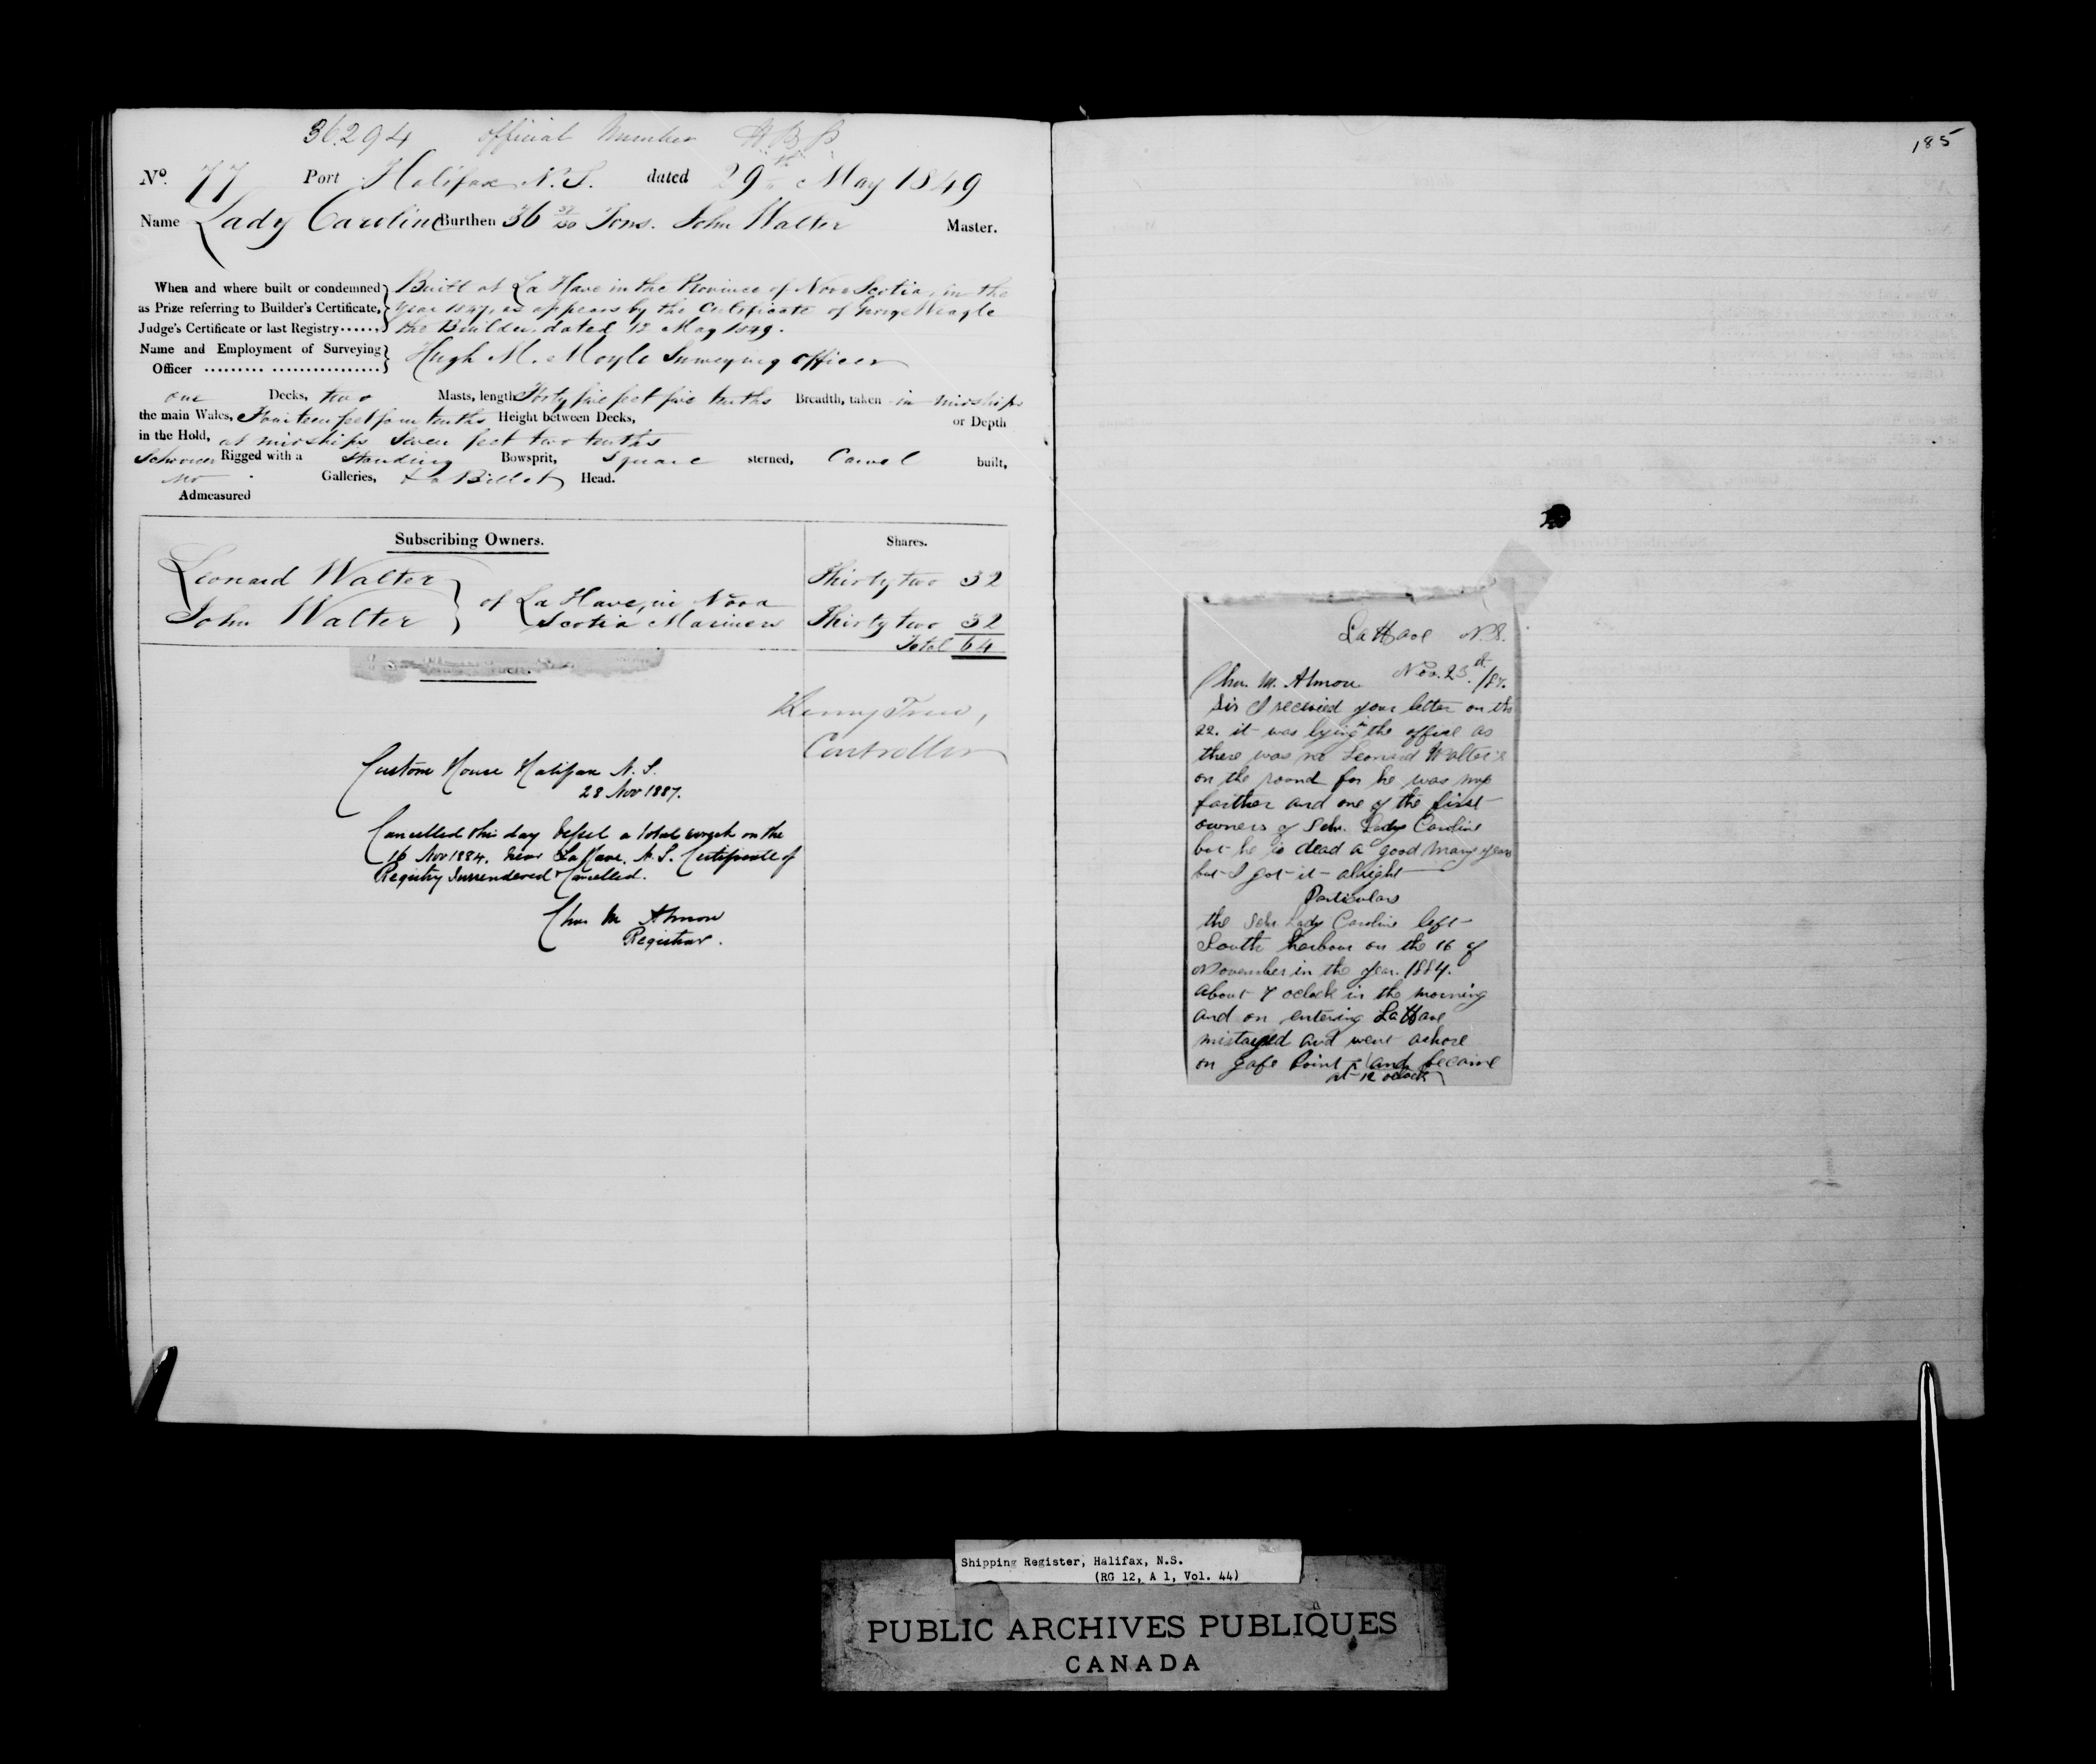 36294 Official Number
No. 77 Port Halifax N.S. dated 29th May 1849
Name Lady Caroline Burthen 36 Tons. John Walter Master.
When and where built or condemned as Prize referring to Builder's Certificate, Judge's Certificate or last Registry......
Built at La Have in the Province of Nova Scotia, in the
Year 1847, as appears by the Certificate of George
the Builder, dated 12 May 1849.
Name and Employment of Surveying Officer
Hugh M. Moyle Surveying Officer
one Decks, two Masts, length Forty five feet five tenths Breadth, taken in midships
the main Wales, Fourteen feet four tenths Height between Decks, or Depth
in the Hold, at midships Seven feet two tenths
Schooner Rigged with a Standing Bowsprit, Square sterned, Carvel built,
no Galleries, Billet Head.
Admeasured
Subscribing Owners. Shares.
Leonard Walter Thirty two 32
of La Have, in Nova
John Walter Scotia Mariners Thirty two 32
Total 64
Controller
Custom House Halifax N.S.
28 Nov 1887.
Cancelled this day Vessel a total wreck on the
16 Nov 1884. near LaHave. N.S. Certificate of
Registry Surrendered & Cancelled.
Chas M Almon
Registrar.
185
LaHave N.S.
Nov. 23rd /87.
Chas. M. Almon
Sir I received your letter on the
22. it was lying in the office as
there was no Leonard Walter's
on the round for he was my
farther and one of the first
owners of Schr. Lady Caroline
but he is dead a good many years
but I got it alright
Particulars
the Schr Lady Caroline left
South harbour on the 16 of
November in the year. 1884.
about 7 oclock in the morning
and on entering LaHave
mistayed and went ashore
on gafe Point and became
at 12 oclock
Shipping Register, Halifax, N.S.
(RG 12, A 1, Vol. 44)
PUBLIC ARCHIVES PUBLIQUES
CANADA